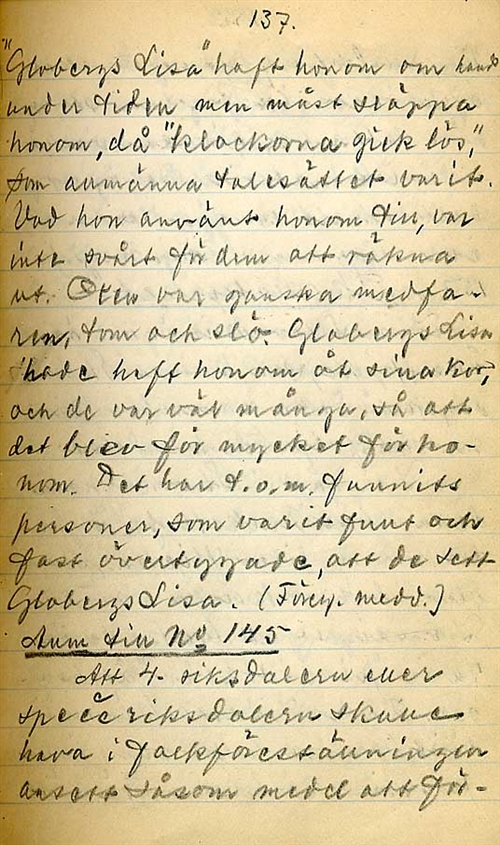 137.
"Globergs Lisa" haft honom om hand
under tiden men måst släppa
honom, då "klockorna gick lös,"
som allmänna talesättet varit.
Vad hon använt honom till, var
inte svårt för dem att räkna
ut. Oxen var ganska medfa-
ren, tom och slö. Globergs Lisa
hade haft honom åt sina kor,
och de var väl många, så att
det blev för mycket för ho-
nom. Det har t.o.m. funnits
personer, som varit fullt och
fast övertygade, att de sett
Globergs Lisa. (Föreg. medd.)
Anm till No 145
Att 4- riksdalern eller
specieriksdalern skulle
hava i folkföreställningen
ansetts såsom medel att för-